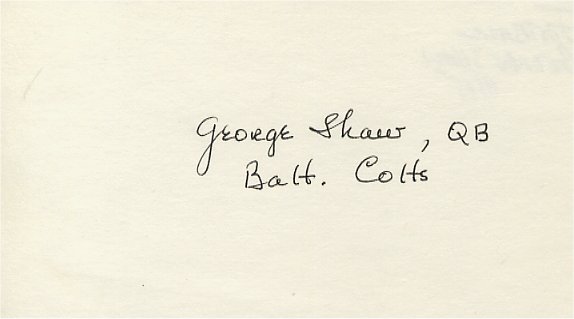 George Shaw, QB
Balt. Colts